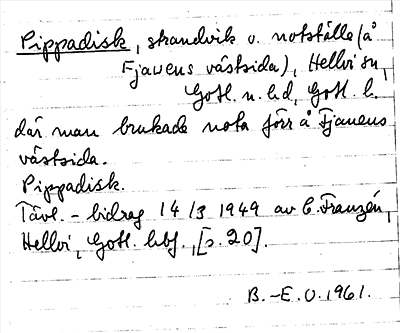 Pippadisk, strandvik o. notställe (å
Fjauens västsida), Hellvi sn,
Gotl. n. hd, Gotl. l.
där man brukade nota förr å Fjauens
västsida.
Pippadisk.
Tävl.-bidrag 14/3 1949 av C. Franzén,
Hellvi, Gotl. hbf., [s. 20].
B.-E. O. 1961.